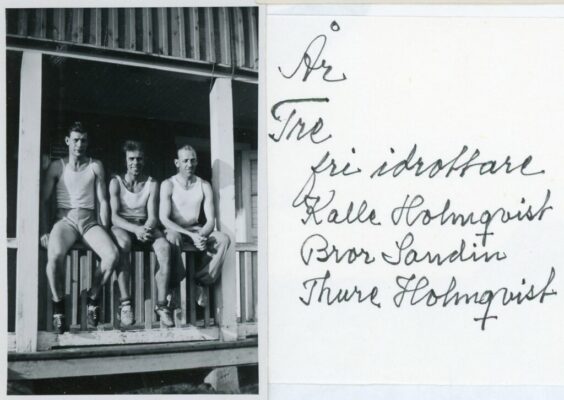 År
Tre
fri idrottare
Kalle Holmqvist
Bror Sandin
Thure Holmqvist